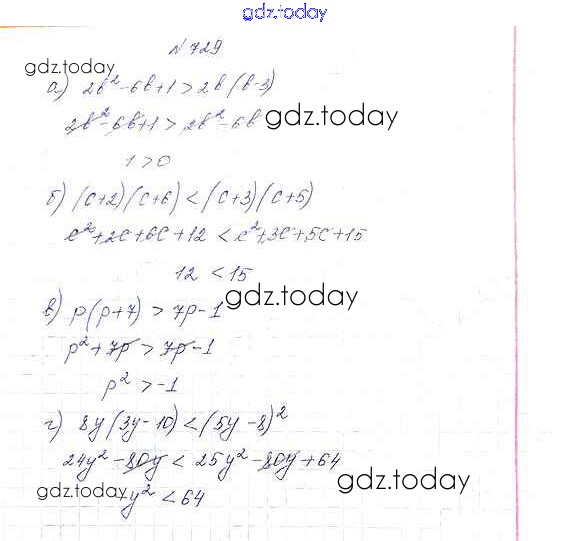 gdz.today
№ 729
gdz.today
а) 2b² - 6b + 1 > 2b(b - 3)
2b² - 6b + 1 > 2b² - 6b
gdz.today
1 > 0
б) (c+2)(c+6) < (c+3)(c+5)
c² + 2c + 6c + 12 < c² + 3c + 5c + 15
12 < 15
gdz.today
в) p(p+7) > 7p - 1
p² + 7p > 7p - 1
p² > -1
г) 8y(3y - 10) < (5y - 8)²
24y² - 80y < 25y² - 80y + 64
gdz.today
-y² < 64
gdz.today